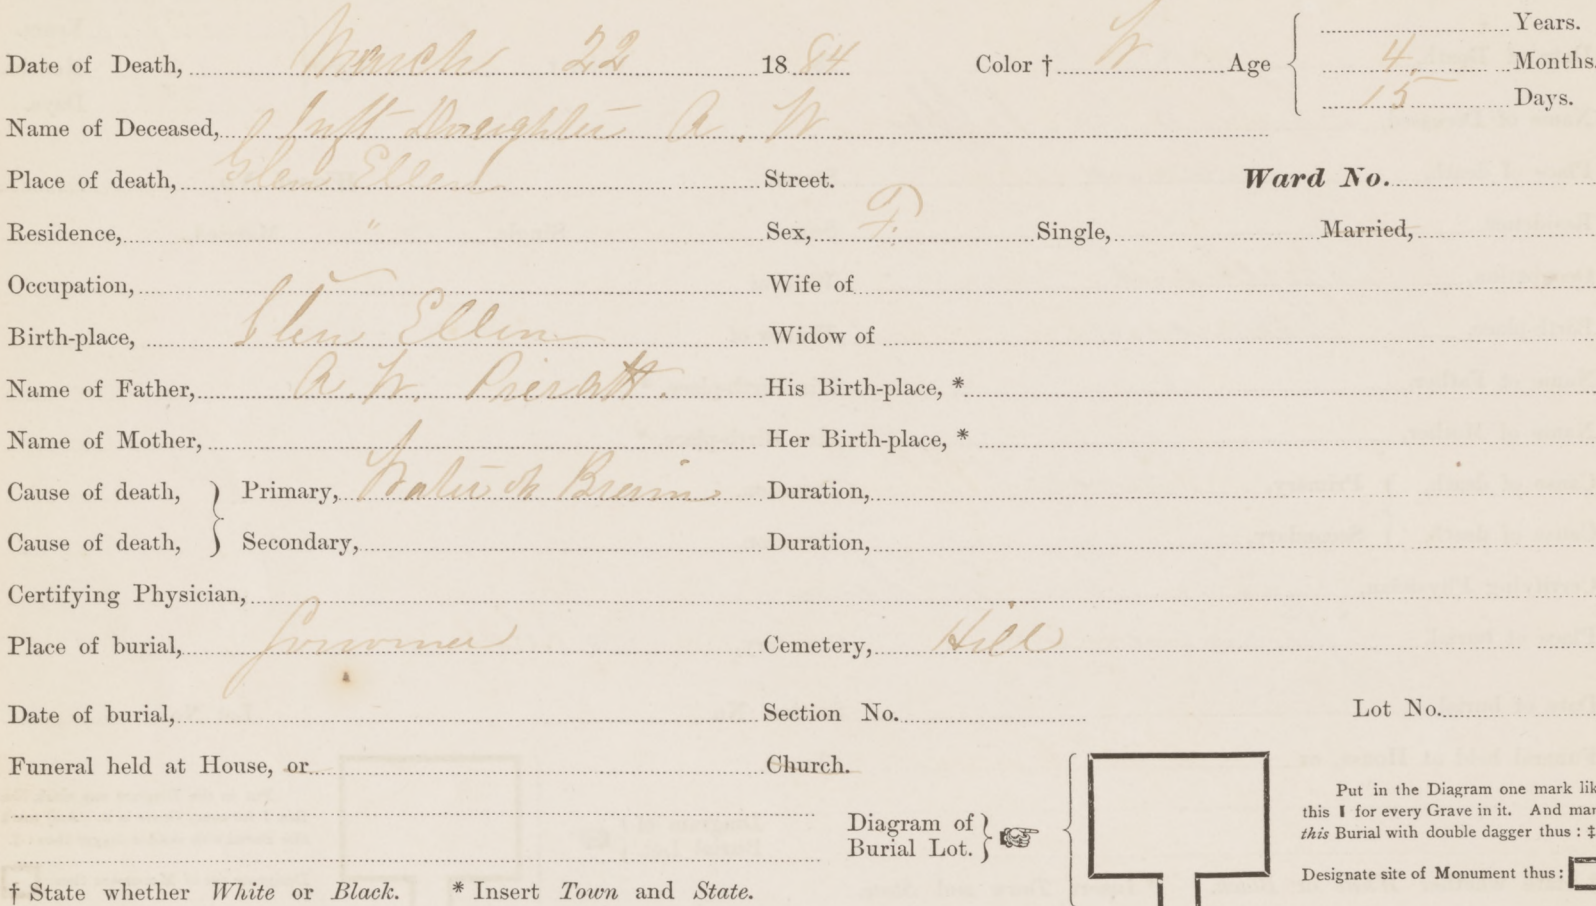 Date of Death, March 22 1884 Color † W Age Years.
4 Months.
15 Days.
Name of Deceased, Inft Daughter A. W.
Place of death, Glen Ellen Street. Ward No.
Residence, " Sex, F. Single, Married,
Occupation, Wife of
Birth-place, Glen Ellen Widow of
Name of Father, A. W. His Birth-place, *
Name of Mother, Her Birth-place, *
Cause of death, Primary, Water on Brain Duration,
Cause of death, Secondary, Duration,
Certifying Physician,
Place of burial, Sonoma Cemetery, Hill
Date of burial, Section No. Lot No.
Funeral held at House, or Church.
Put in the Diagram one mark lik
this I for every Grave in it. And mar
this Burial with double dagger thus : ‡
Diagram of
Burial Lot.
Designate site of Monument thus :
† State whether White or Black. * Insert Town and State.